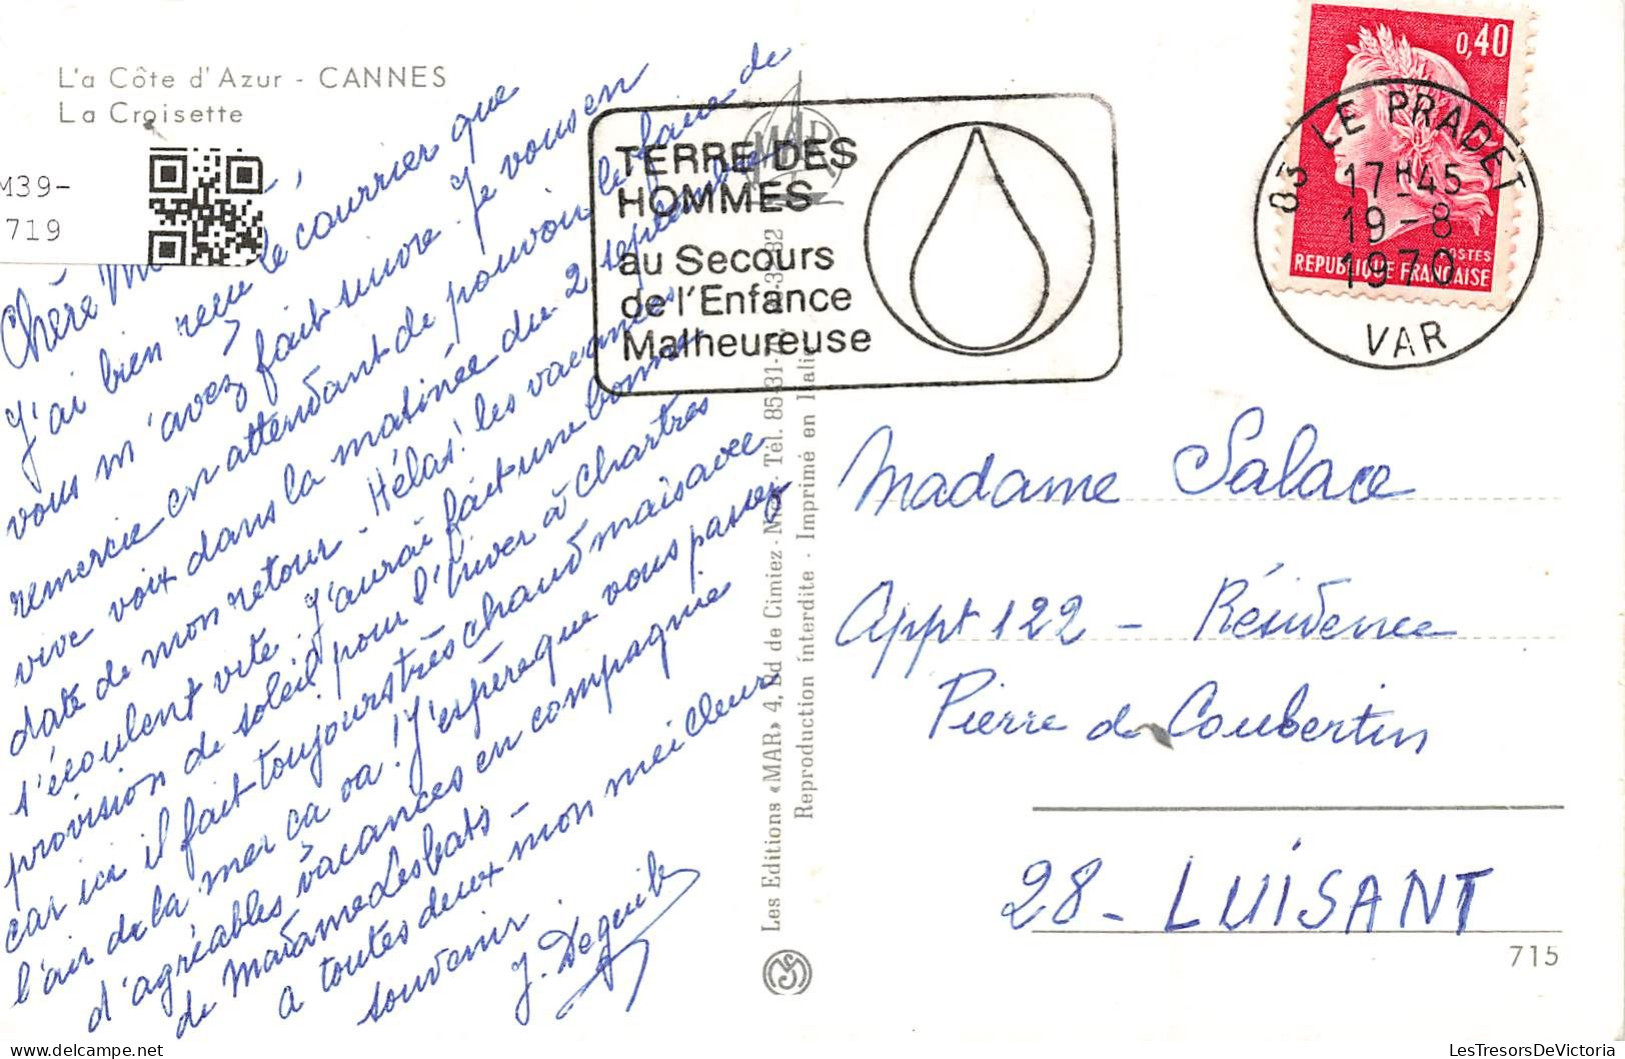 L'a Côte d'Azur - CANNES
La Croisette
M39-
719
Chère
J'ai bien reçu le courrier que
vous m'avez fait suivre. Je vous en
remercie en attendant de pouvoir le faire de
vive voix dans la matinée du 2 septembre
date de mon retour - Hélas! les vacances
s'écoulent vite. J'aurai fait une bonne
provision de soleil pour l'hiver à Chartres
car ici il fait toujours très chaud mais avec
l'air de la mer ça va! J'espère que vous passez
d'agréables vacances en compagnie
de Madame Desbats -
A toutes deux mon meilleur
souvenir.
MAR
TERRE DES
HOMMES
au Secours
de l'Enfance
Malheureuse
0,40
POSTES
REPUBLIQUE FRANÇAISE
83 LE PRADET
17 H 45
19 - 8
1970
VAR
Les Editions «MAR» 4, Bd de Cimiez - Nice Tél. 85-31-
Reproduction interdite - Imprimé en Italie
Madame Salace
Appt 122 - Résidence
Pierre de Coubertin
28 - LUISANT
715
LesTresorsDeVictoria